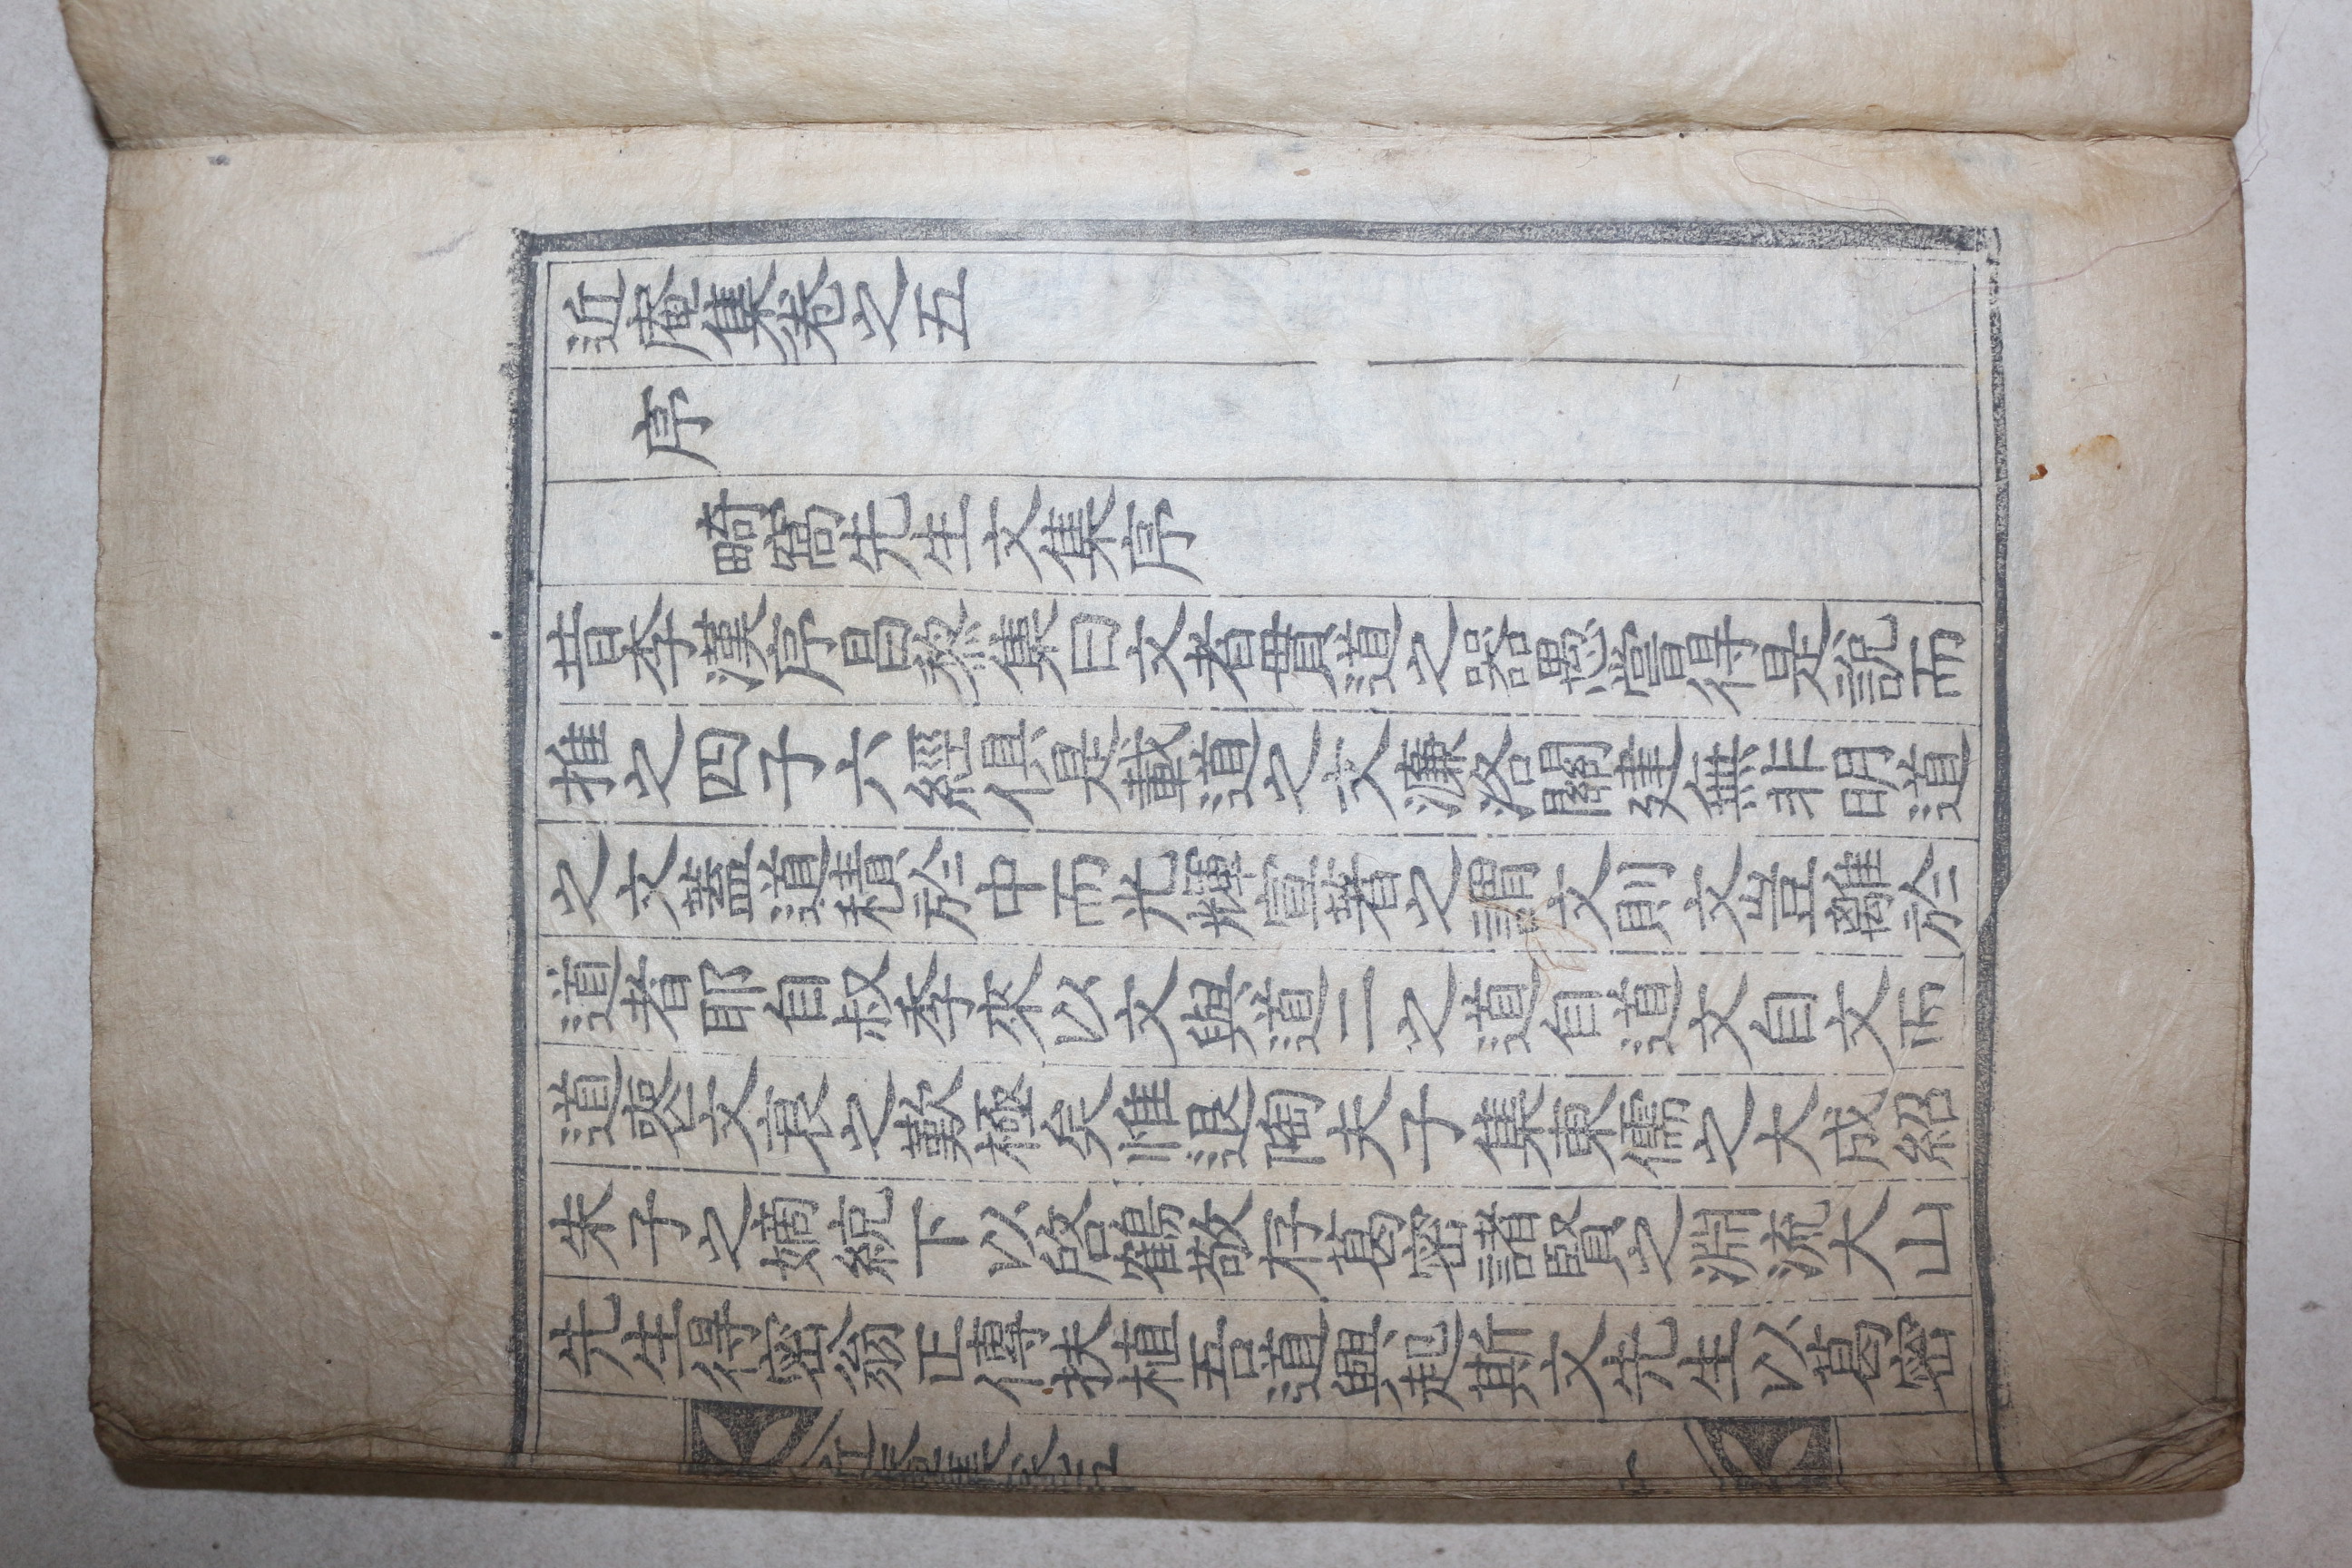 近庵集卷之五
序
畸窩先生文集序
昔李漢序昌黎集曰文者貫道之器愚嘗得是說而
推之四子六經俱是載道之文濂洛關建無非明道
之文葢道積於中而光輝宣著之謂文則文豈離於
道者耶自叔季來以文與道二之道自道文自文而
道喪文衰之歎極矣惟退陶夫子集東儒之大成紹
朱子之嫡統下以啓鶴敬存葛密諸賢之淵流大山
先生得密翁正傳扶植吾道興起斯文先生以葛密
近庵集卷之五